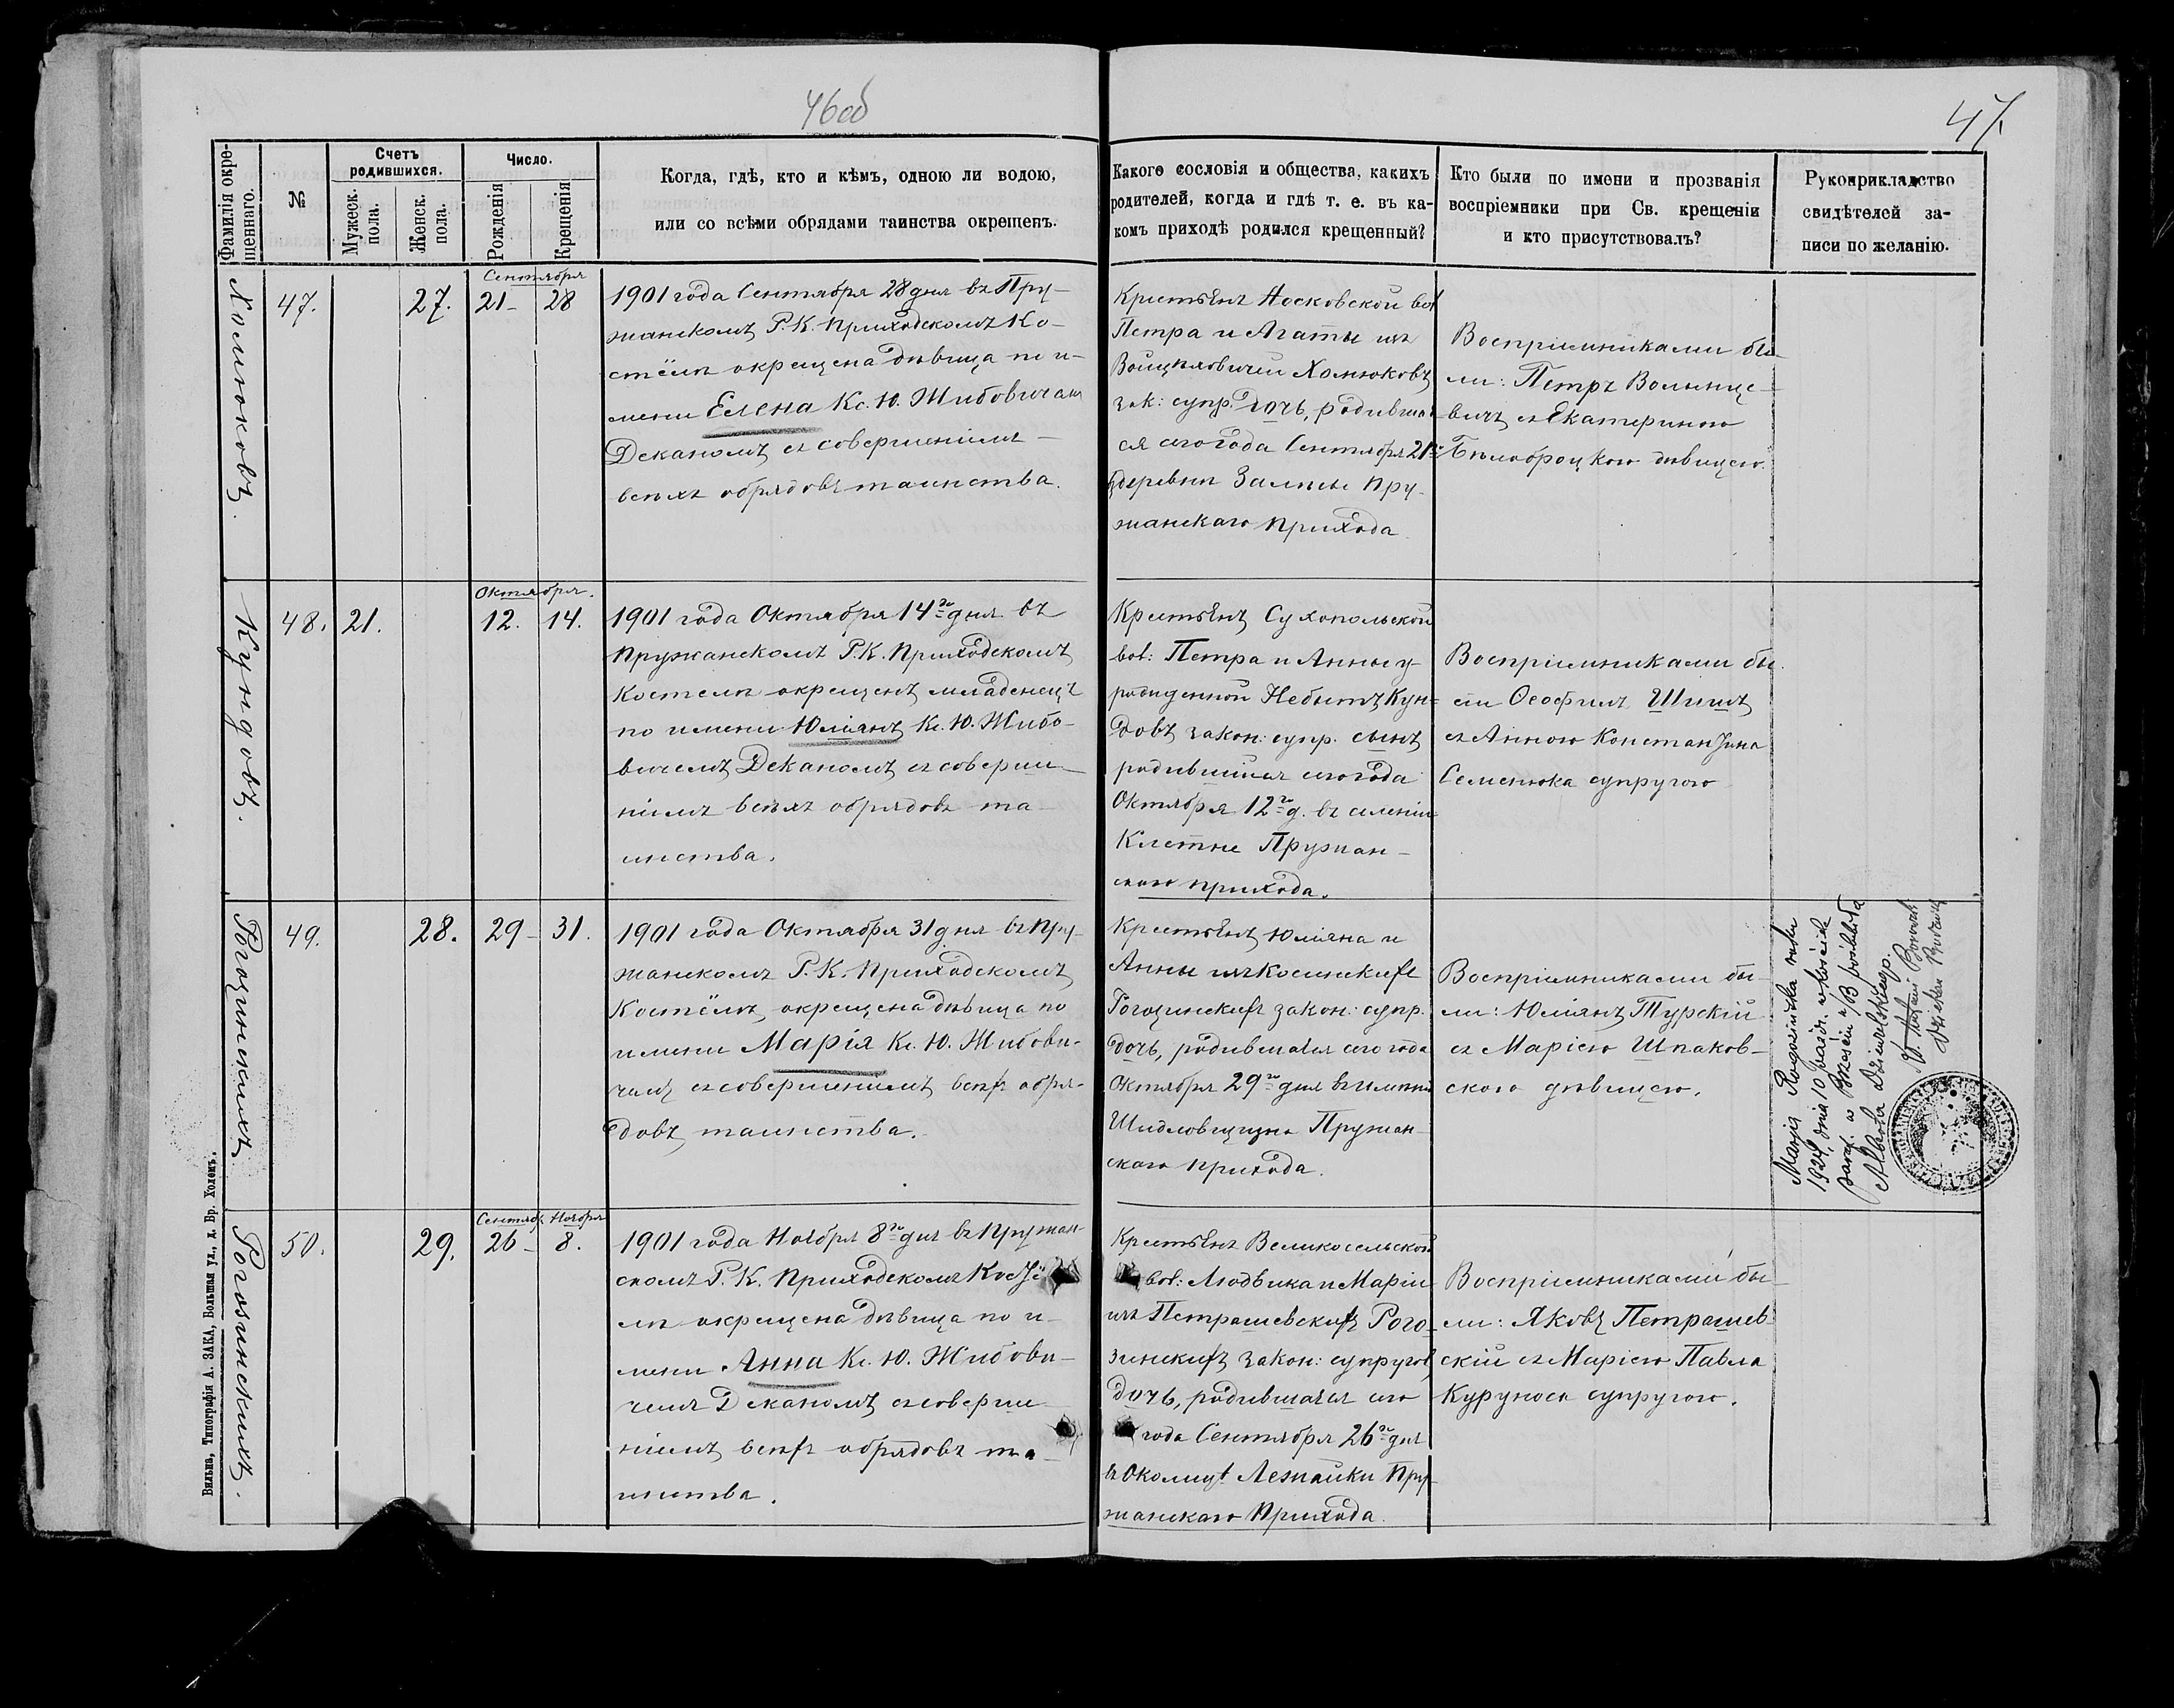 46об
47
Фамилія окре-
щеннаго.
№
Счетъ
родившихся.
Мужеск.
пола.
Женск.
пола.
Число.
Рожденія
Крещенія
Когда, гдѣ, кто и кѣмъ, одною ли водою,
или со всѣми обрядами таинства окрещенъ.
Какого сословія и общества, какихъ
родителей, когда и гдѣ т. е. въ ка-
комъ приходѣ родился крещенный?
Кто были по имени и прозванія
воспріемники при Св. крещеніи
и кто присутствовалъ?
Рукоприкладство
свидѣтелей за-
писи по желанію.
Хомюковъ.
47.
27.
Сентября
21-
28
1901 года Сентября 28 дня въ Пру-
жанскомъ Р.К. Приходскомъ Ко-
стёлѣ окрещена дѣвица по и-
мени Елена Кс. Ю. Жибовичемъ
Деканомъ съ совершеніемъ
всѣхъ обрядовъ таинства.
Крестьянъ Носковской вол
Петра и Агаты изъ
Хомюковъ
зак: супр. дочь, родившая
ся сего года Сентября 21
деревни Замлыны Пру-
жанскаго Прихода
Воспріемниками бы-
ли: Петръ Волынце-
вичъ съ Екатериною
Бѣлоброцкою дѣвицею.
Кундовъ.
48.
21.
Октября.
12.
14.
1901 года Октября 14го дня въ
Пружанскомъ Р.К. Приходскомъ
Костелѣ окрещенъ младенецъ
по имени Юліянъ Кс. Ю. Жибо-
вичемъ Деканомъ съ соверше-
ніемъ всѣхъ обрядовъ та-
инства.
Крестьянъ Сухопольской
вол: Петра и Анны у-
рожденной Небытъ Кун-
довъ закон: супр. сынъ
родившійся сего года
Октября 12го д. въ селеніи
Клетне Пружан-
скаго прихода.
Воспріемниками бы-
ли Ѳеофилъ Шишъ
съ Анною Константина
Семенюка супругою
Рогозинскихъ
49.
28.
29-
31.
1901 года Октября 31 дня въ Пру-
жанскомъ Р.К. Приходскомъ
Костёлѣ, окрещена дѣвица по
имени Марія Кс. Ю. Жибови-
чемъ съ совершеніемъ всѣхъ обря-
довъ таинства.
Крестьянъ Юліяна и
Анны изъ Косинскихъ
Рогозинскихъ закон: супр.
дочь, родившаяся сего года
Октября 29го дня въ имѣніи
Шидловщизна Пружан-
скаго прихода.
Воспріемниками бы-
ли: Юліянъ Турскій
съ Маріею Шпаков-
скою дѣвицею.
Marja Rogozińska roku
1924, dnia 10 paźdz. w kościele
paraf. w Brześciu n/B poślubiła
Alberta
Rogozинскихъ.
50.
29.
Сентяб.
Ноября
26-
8.
1901 года Ноября 8го дня въ Пружан-
скомъ Р.К. Приходскомъ Костё-
лѣ окрещена дѣвица по и-
мени Анна Кс. Ю. Жибови-
чемъ Деканомъ съ соверше-
ніемъ всѣхъ обрядовъ та-
инства.
Крестьянъ Великосельской
вол: Людвика и Маріи
изъ Петрашевскихъ Рого-
зинскихъ закон: супруговъ
дочь, родившаяся сего
года Сентября 26го дня
въ околицѣ Лежайки Пру-
жанскаго Прихода.
Воспріемниками бы-
ли: Яковъ Петрашев-
скій съ Маріею Павла
Куруноса супругою.
Вильна, Типографія А. ЗАКА, Большая ул., д. Бр. Холемъ.